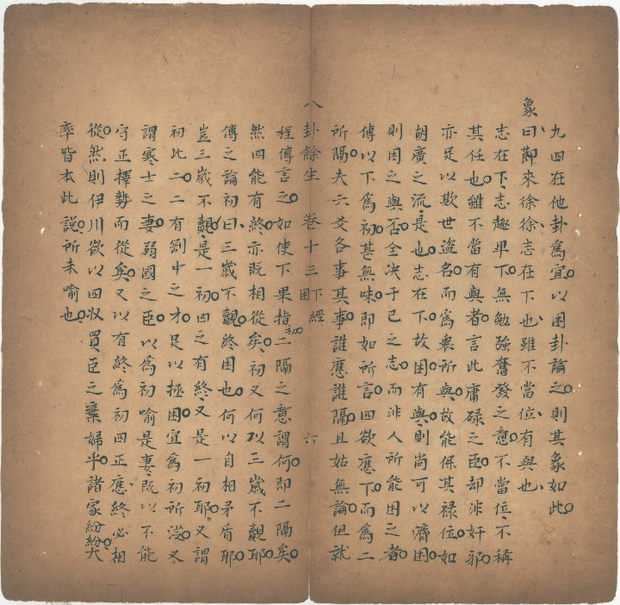 九四在他卦為宜以困卦論之則其象如此
象曰節來徐徐志在下也雖不當位有與也
志在下志趣卑下無勉強奮發之意不當位不稱
其任也雖不當有與者言此庸碌之臣却非奸邪
亦足以欺世盜名而為衆所與故能保其祿位如
胡廣之流是也志在下故困有與則尚可以濟困
則困之與否全決于己之志而非人所能困之者
傳以下為初甚無味即如所言四欲應下而為二
所隔夫六爻各事其事誰應誰隔且姑無論但就
八卦餘生 卷十三 下經 困 六
程傳言之如使下果指初二隔之意謂何即二隔矣
然四能有終亦既相從矣初又何以三歲不覿耶
傳之論初曰三歲不覿終困也何以自相矛盾耶
豈三歲不覿是一初四之有終又是一初耶又謂
初此二二有剛中之才足以拯困宜為初所從又
謂寒士之妻弱國之臣以為初喻是妻既以不能
守正擇勢而從矣又以有終為初四正應終必相
從然則伊川欲以四收買臣之棄婦乎諸家紛紛大
率皆本此說所未喻也